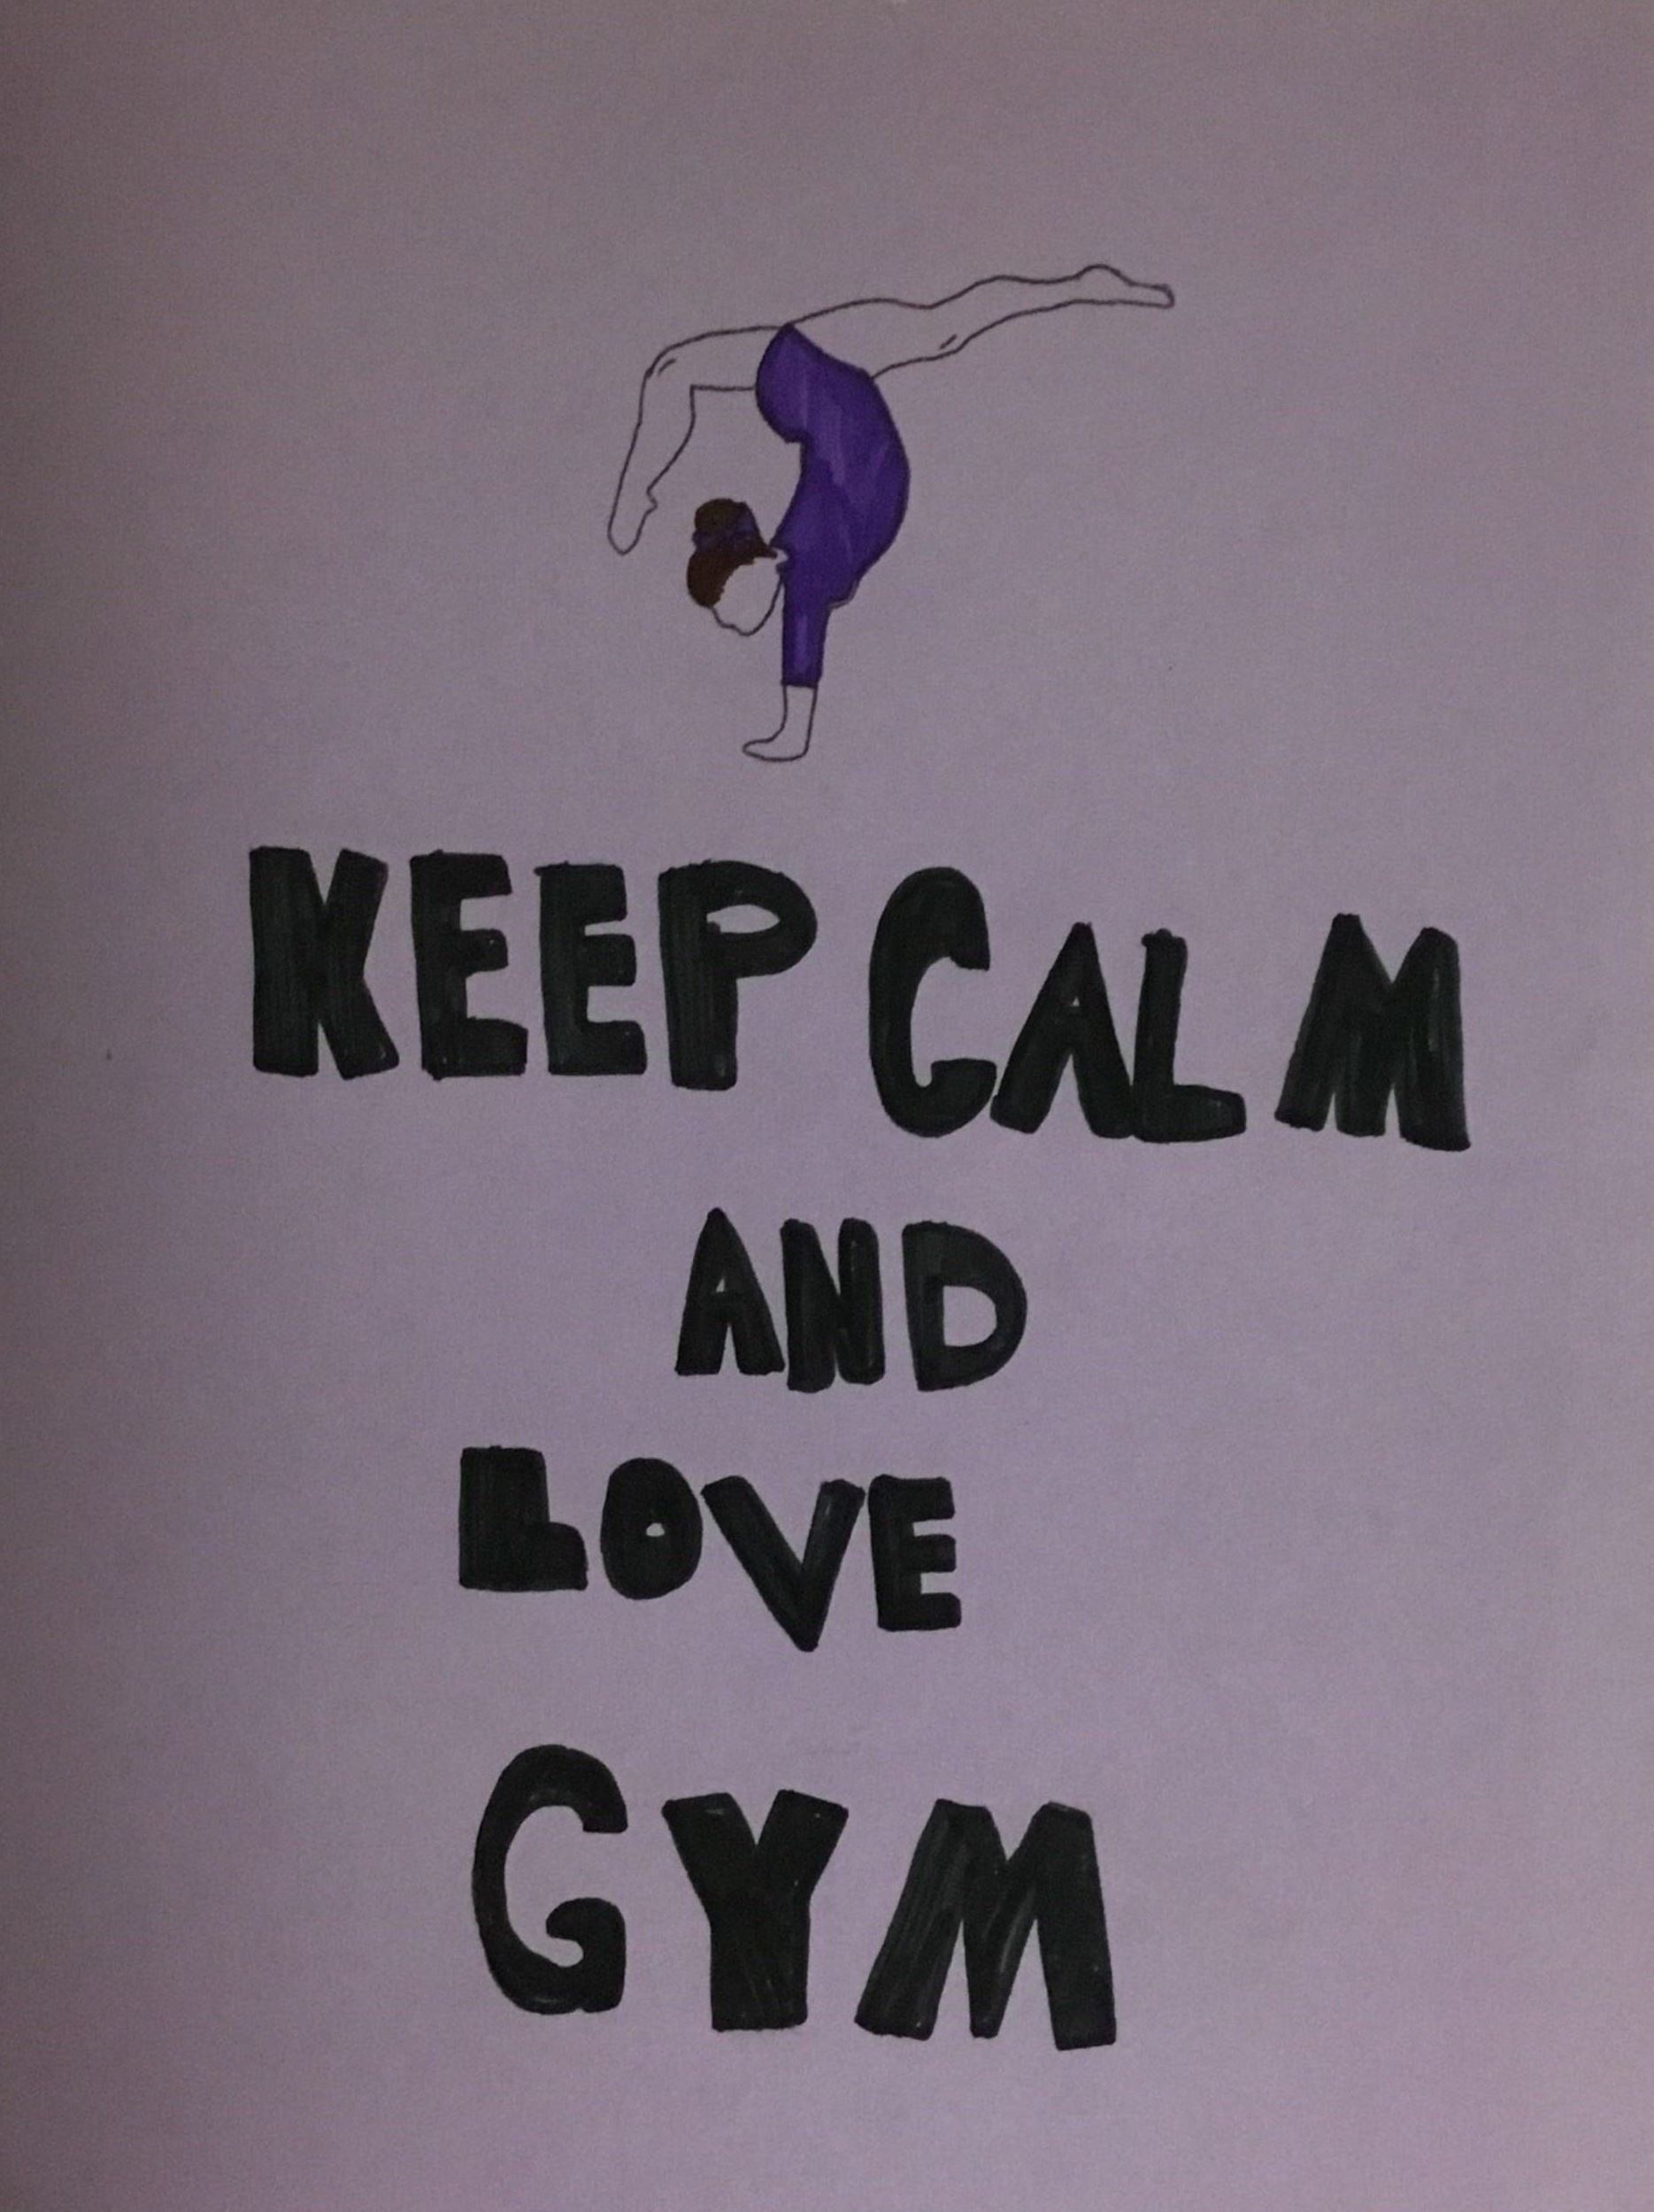 KEEP CALM
AND
LOVE
GYM